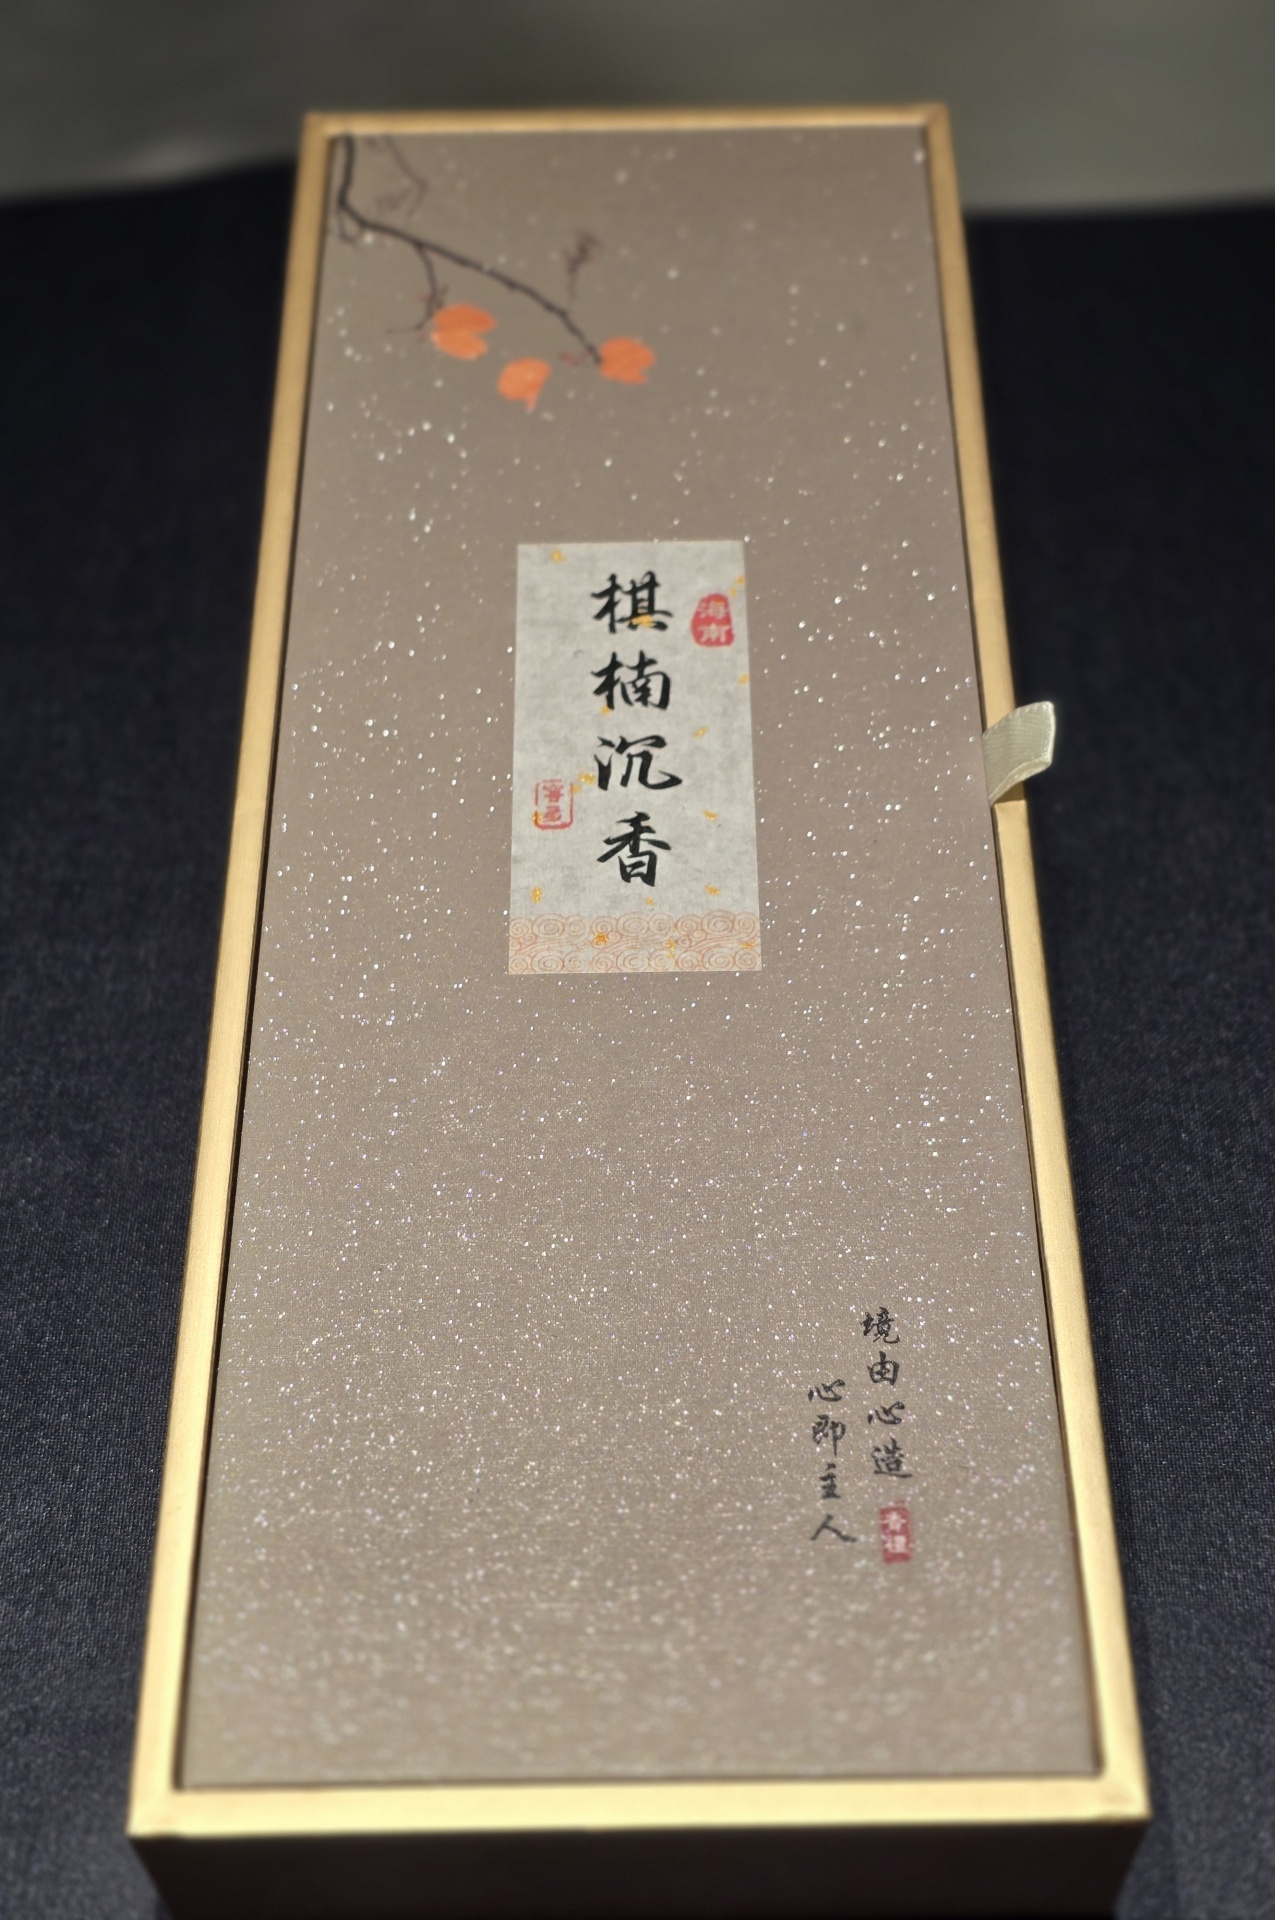 棋楠沉香
海南
境由心造
心即主人
香禮